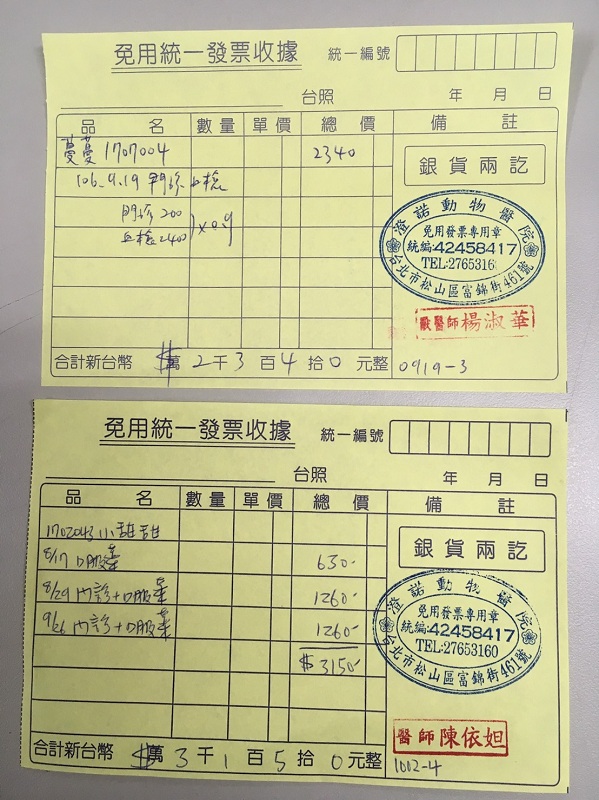 免用統一發票收據 統一編號
台照 年 月 日
品 名 數量 單價 總 價 備 註
蔓蔓 1707004 2340
銀貨兩訖
106.9.19 門診 血檢
門診 200
血檢 2400 } x0.9
澄諾動物醫院
免用發票專用章
統編:42458417
TEL:2765316
台北市松山區富錦街461號
獸醫師 楊淑華
合計新台幣 $萬 2千 3百 4拾 0元整 0919-3
免用統一發票收據 統一編號
台照 年 月 日
品 名 數量 單價 總 價 備 註
1702043 小甜甜
銀貨兩訖
8/17 口服藥 630-
8/29 內診+口服藥 1260-
9/26 內診+口服藥 1260-
$3150-
澄諾動物醫院
免用發票專用章
統編:42458417
TEL:27653160
台北市松山區富錦街461號
醫師 陳依妲
合計新台幣 $萬 3千 1百 5拾 0元整 1002-4